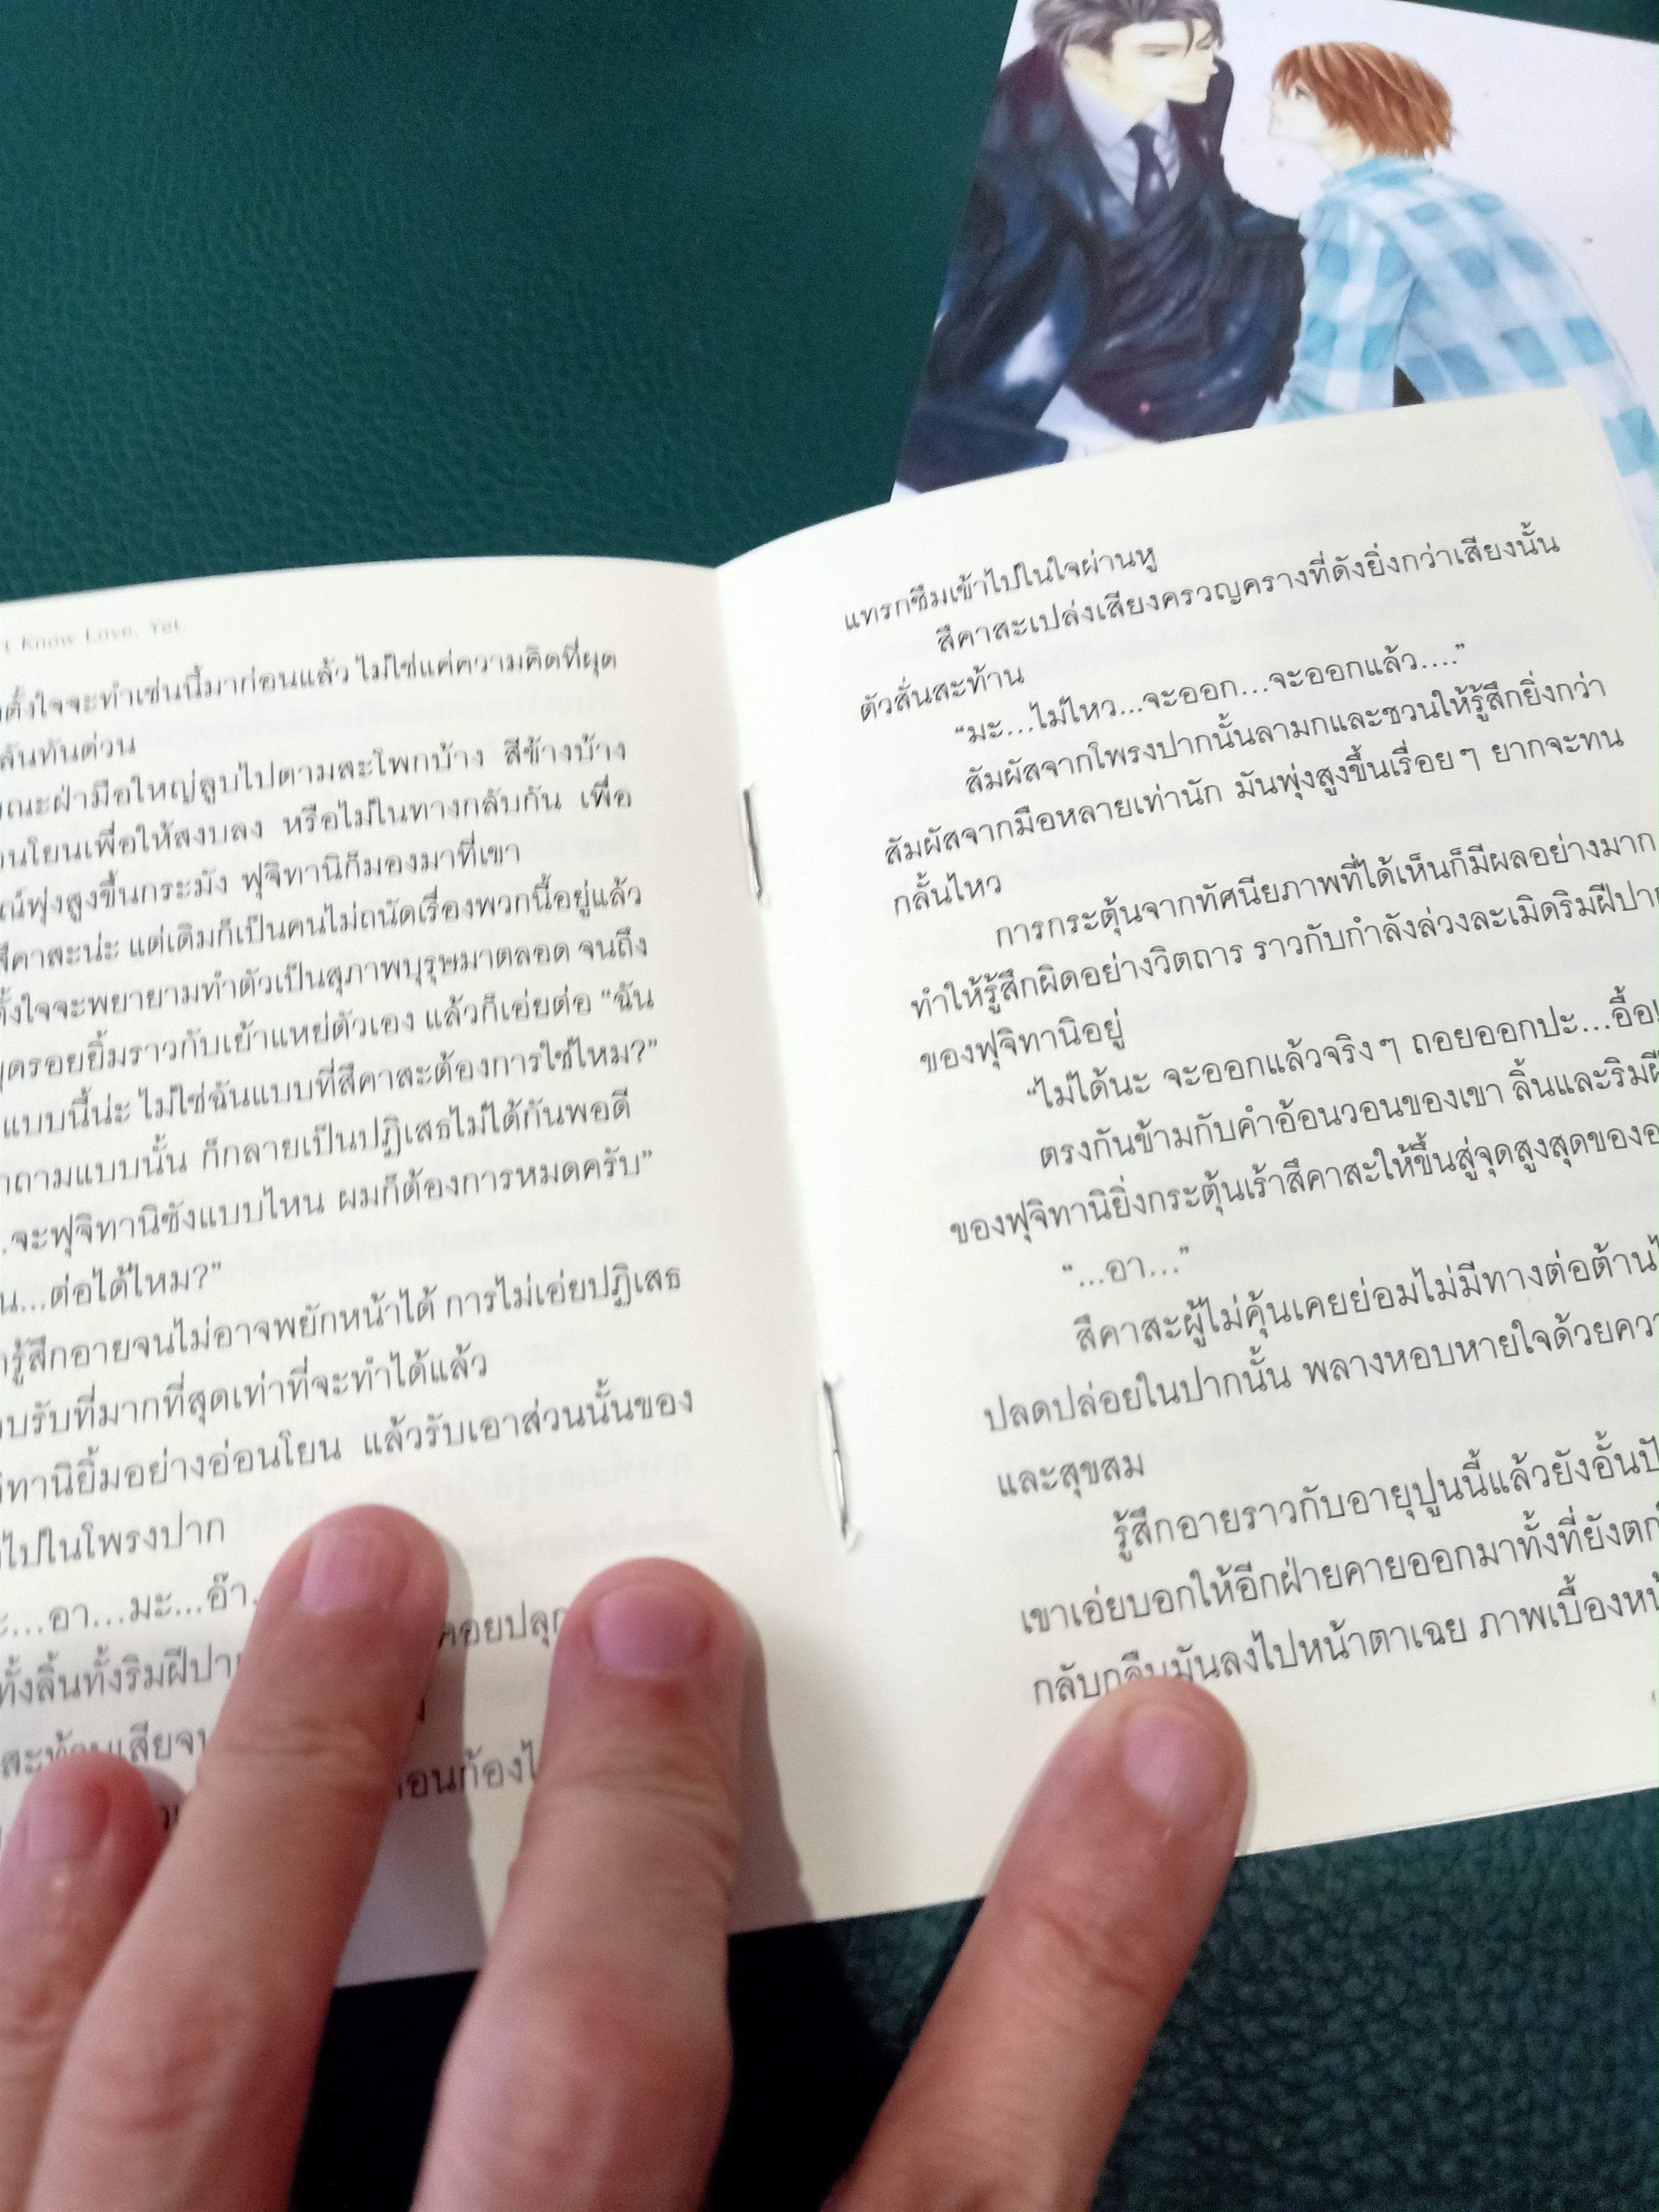 I Know Love, Yet.
ตั้งใจจะทำเช่นนี้มาก่อนแล้ว ไม่ใช่แค่ความคิดที่ผุด
ทันด่วน
ฝ่ามือใหญ่ลูบไปตามสะโพกบ้าง สีข้างบ้าง
เพื่อให้สงบลง หรือไม่ในทางกลับกัน เพื่อ
พุ่งสูงขึ้นกระมัง ฟุจิทานิก็มองมาที่เขา
สึคาสะน่ะ แต่เดิมก็เป็นคนไม่ถนัดเรื่องพวกนี้อยู่แล้ว
ตั้งใจจะพยายามทำตัวเป็นสุภาพบุรุษมาตลอด จนถึง
รอยยิ้มราวกับเย้าแหย่ตัวเอง แล้วก็เอ่ยต่อ “ฉัน
แบบนี้น่ะ ไม่ใช่ฉันแบบที่สึคาสะต้องการใช่ไหม?”
ถามแบบนั้น ก็กลายเป็นปฏิเสธไม่ได้กันพอดี
จะฟุจิทานิซังแบบไหน ผมก็ต้องการหมดครับ”
...ต่อได้ไหม?”
รู้สึกอายจนไม่อาจพยักหน้าได้ การไม่เอ่ยปฏิเสธ
รับที่มากที่สุดเท่าที่จะทำได้แล้ว
ยิ้มอย่างอ่อนโยน แล้วรับเอาส่วนนั้นของ
ไปในโพรงปาก
...อา...มะ...อ๊า
ทั้งลิ้นทั้งริมฝีปา คอยปลุก
แทรกซึมเข้าไปในใจผ่านหู
สึคาสะเปล่งเสียงครวญครางที่ดังยิ่งกว่าเสียงนั้น
ตัวสั่นสะท้าน
“มะ...ไม่ไหว...จะออก...จะออกแล้ว....”
สัมผัสจากโพรงปากนั้นลามกและชวนให้รู้สึกยิ่งกว่า
สัมผัสจากมือหลายเท่านัก มันพุ่งสูงขึ้นเรื่อยๆ ยากจะทน
กลั้นไหว
การกระตุ้นจากทัศนียภาพที่ได้เห็นก็มีผลอย่างมาก
ทำให้รู้สึกผิดอย่างวิตถาร ราวกับกำลังล่วงละเมิดริมฝีปาก
ของฟุจิทานิอยู่
“ไม่ได้นะ จะออกแล้วจริงๆ ถอยออกปะ...อื้อ!
ตรงกันข้ามกับคำอ้อนวอนของเขา ลิ้นและริมฝี
ของฟุจิทานิยิ่งกระตุ้นเร้าสึคาสะให้ขึ้นสู่จุดสูงสุดของอ
“...อา...”
สึคาสะผู้ไม่คุ้นเคยย่อมไม่มีทางต่อต้าน
ปลดปล่อยในปากนั้น พลางหอบหายใจด้วยควา
และสุขสม
รู้สึกอายราวกับอายุปูนนี้แล้วยังอั้นปั
เขาเอ่ยบอกให้อีกฝ่ายคายออกมาทั้งที่ยังตก
กลับกลืนมันลงไปหน้าตาเฉย ภาพเบื้องหน้